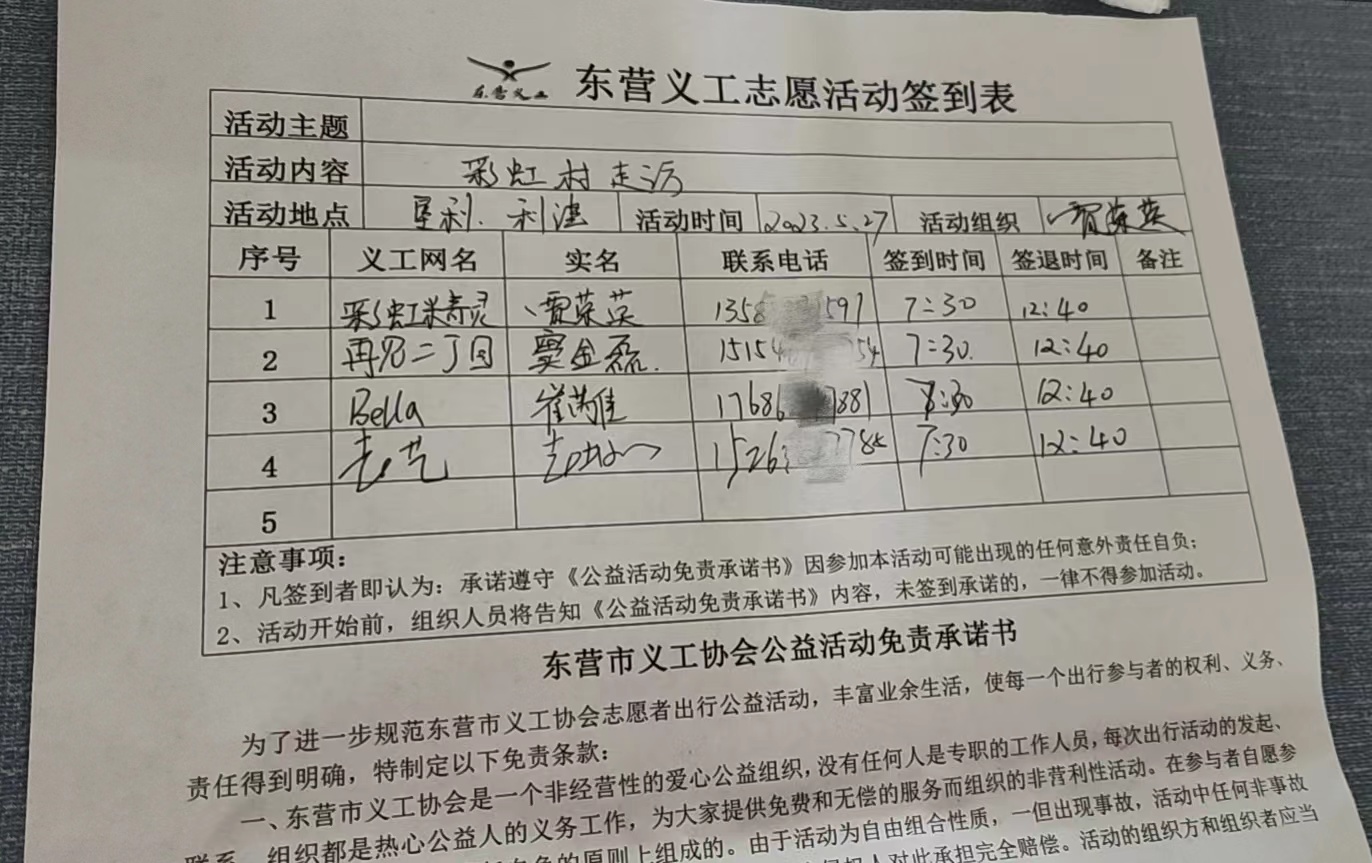 东营义工 东营义工志愿活动签到表
活动主题
活动内容 彩虹村走访
活动地点 垦利.利津 活动时间 2023.5.27 活动组织 贾荣英
序号 义工网名 实名 联系电话 签到时间 签退时间 备注
1 彩虹精灵 贾荣英 1358 597 7:30 12:40
2 再见二丁目 窦金磊. 15154 54 7:30. 12:40
3 Bella 崔 佳 17686 7881 7:30 12:40
4 15263 778 7:30 12:40
5
注意事项:
1、凡签到者即认为:承诺遵守《公益活动免责承诺书》因参加本活动可能出现的任何意外责任自负;
2、活动开始前,组织人员将告知《公益活动免责承诺书》内容,未签到承诺的,一律不得参加活动。
东营市义工协会公益活动免责承诺书
为了进一步规范东营市义工协会志愿者出行公益活动,丰富业余生活,使每一个出行参与者的权利、义务、
责任得到明确,特制定以下免责条款:
一、东营市义工协会是一个非经营性的爱心公益组织,没有任何人是专职的工作人员,每次出行活动的发起、
联系、组织都是热心公益人的义务工作,为大家提供免费和无偿的服务而组织的非营利性活动。在参与者自愿参
的原则上组成的。由于活动为自由组合性质,一但出现事故,活动中任何非事故
人对此承担完全赔偿。活动的组织方和组织者应当